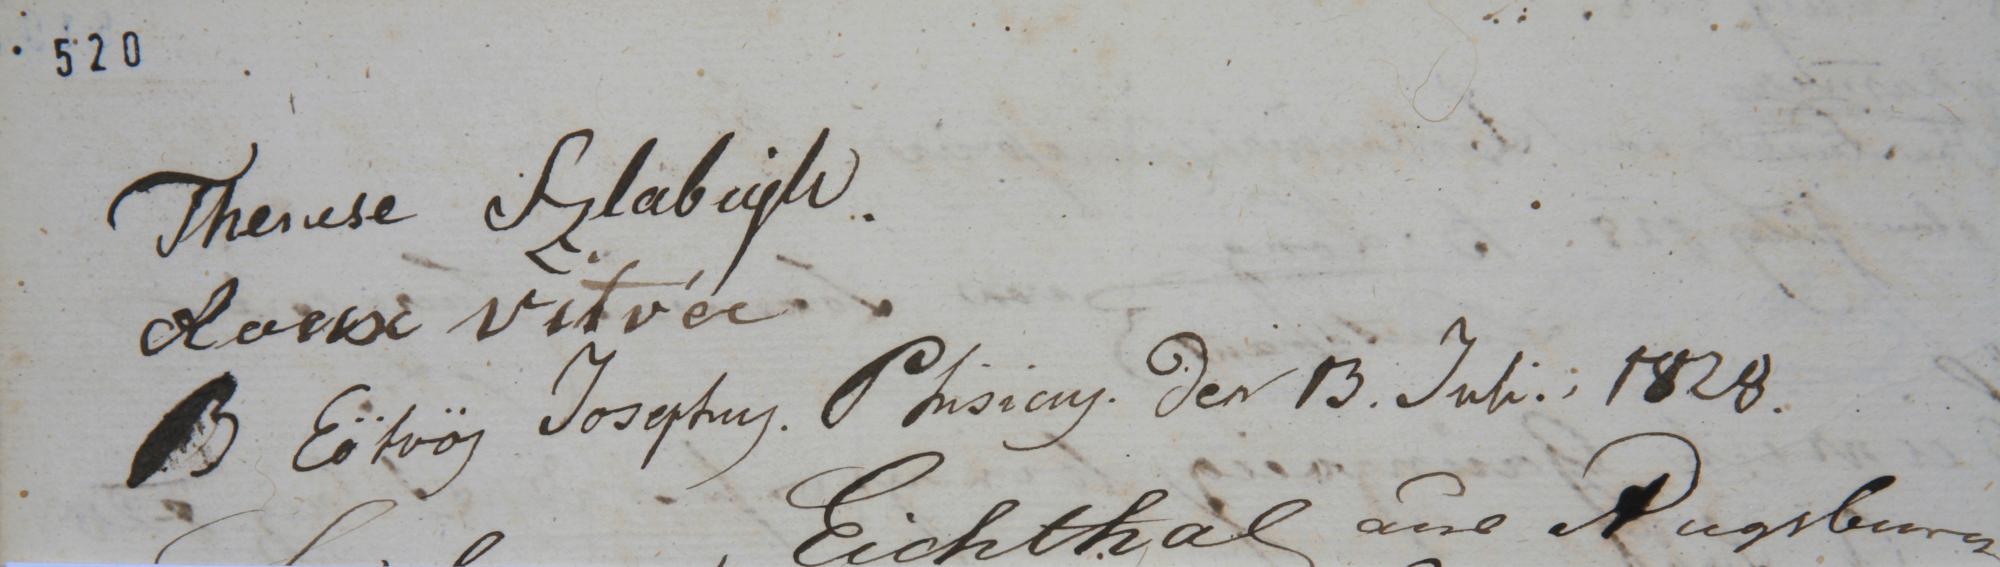 520
Therese Szlabigh.
Roux Vitvée
B Eötvös Josephus. Phisicus. Den 13. Juli. 1828.
Eichthal aus Augsburg